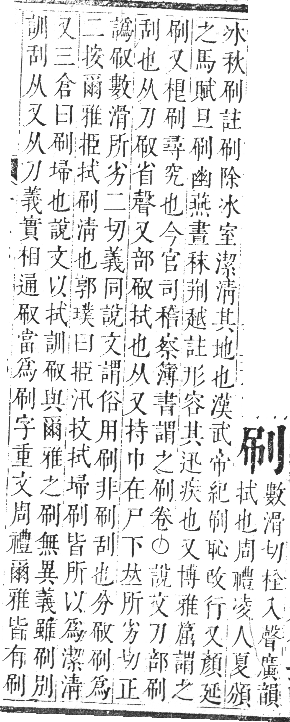 刷
數滑切栓入聲廣韻
拭也周禮凌人夏頒
冰秋刷註刷除冰室潔清其地也漢武帝紀刷恥改行又顏延
之馬賦旦刷幽燕晝秣荆越註形容其迅疾也又博雅篦謂之
刷又梩刷尋究也今官司稽察簿書謂之刷卷○說文刀部刷
刮也从刀㕞省聲又部㕞拭也从又持巾在尸下𠀤所劣切正
譌㕞數滑所劣二切義同說文謂俗用刷非刷刮也分㕞刷爲
二按爾雅挋拭刷清也郭璞曰挋汛抆拭埽刷皆所以爲潔清
又三倉曰刷埽也說文以拭訓㕞與爾雅之刷無異義雖刷別
訓刮从又从刀義實相通㕞當爲刷字重文周禮爾雅皆有刷